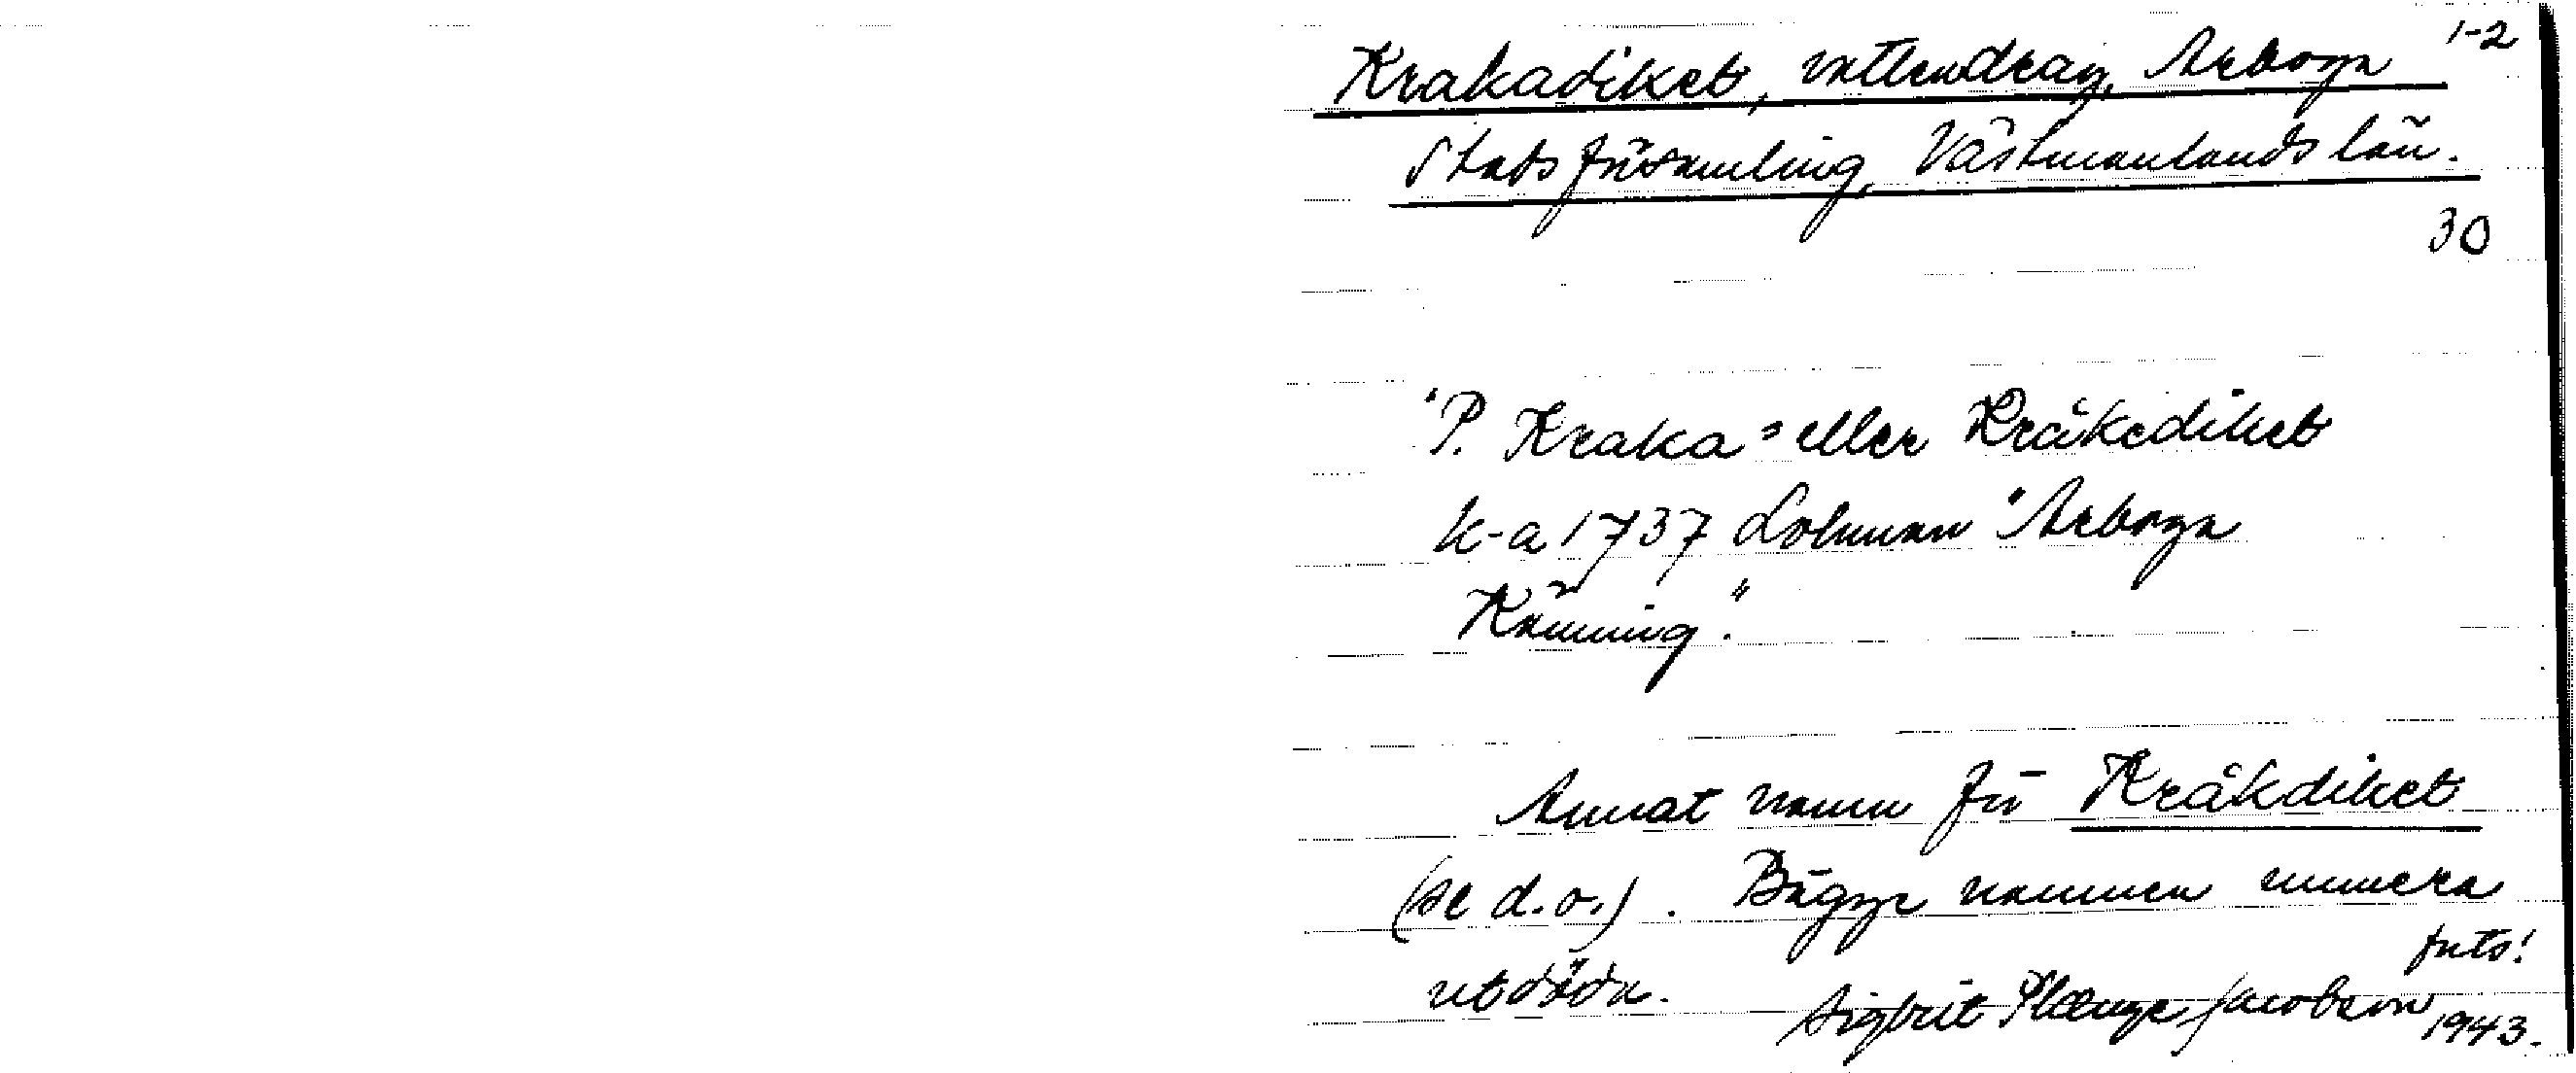 1-2
Krakadiket, vattendrag, Arboga
Stadsförsamling, Västmanlands län.
30
"P. Kraka= eller Kråkediket
k-a 1737 Lohman "Arboga
Känning."
Annat namn för Kråkdiket
(se d.o.). Bägge namnen numera
utdöda.
forts!
Sigbrit Plænge Jacobson
1943.